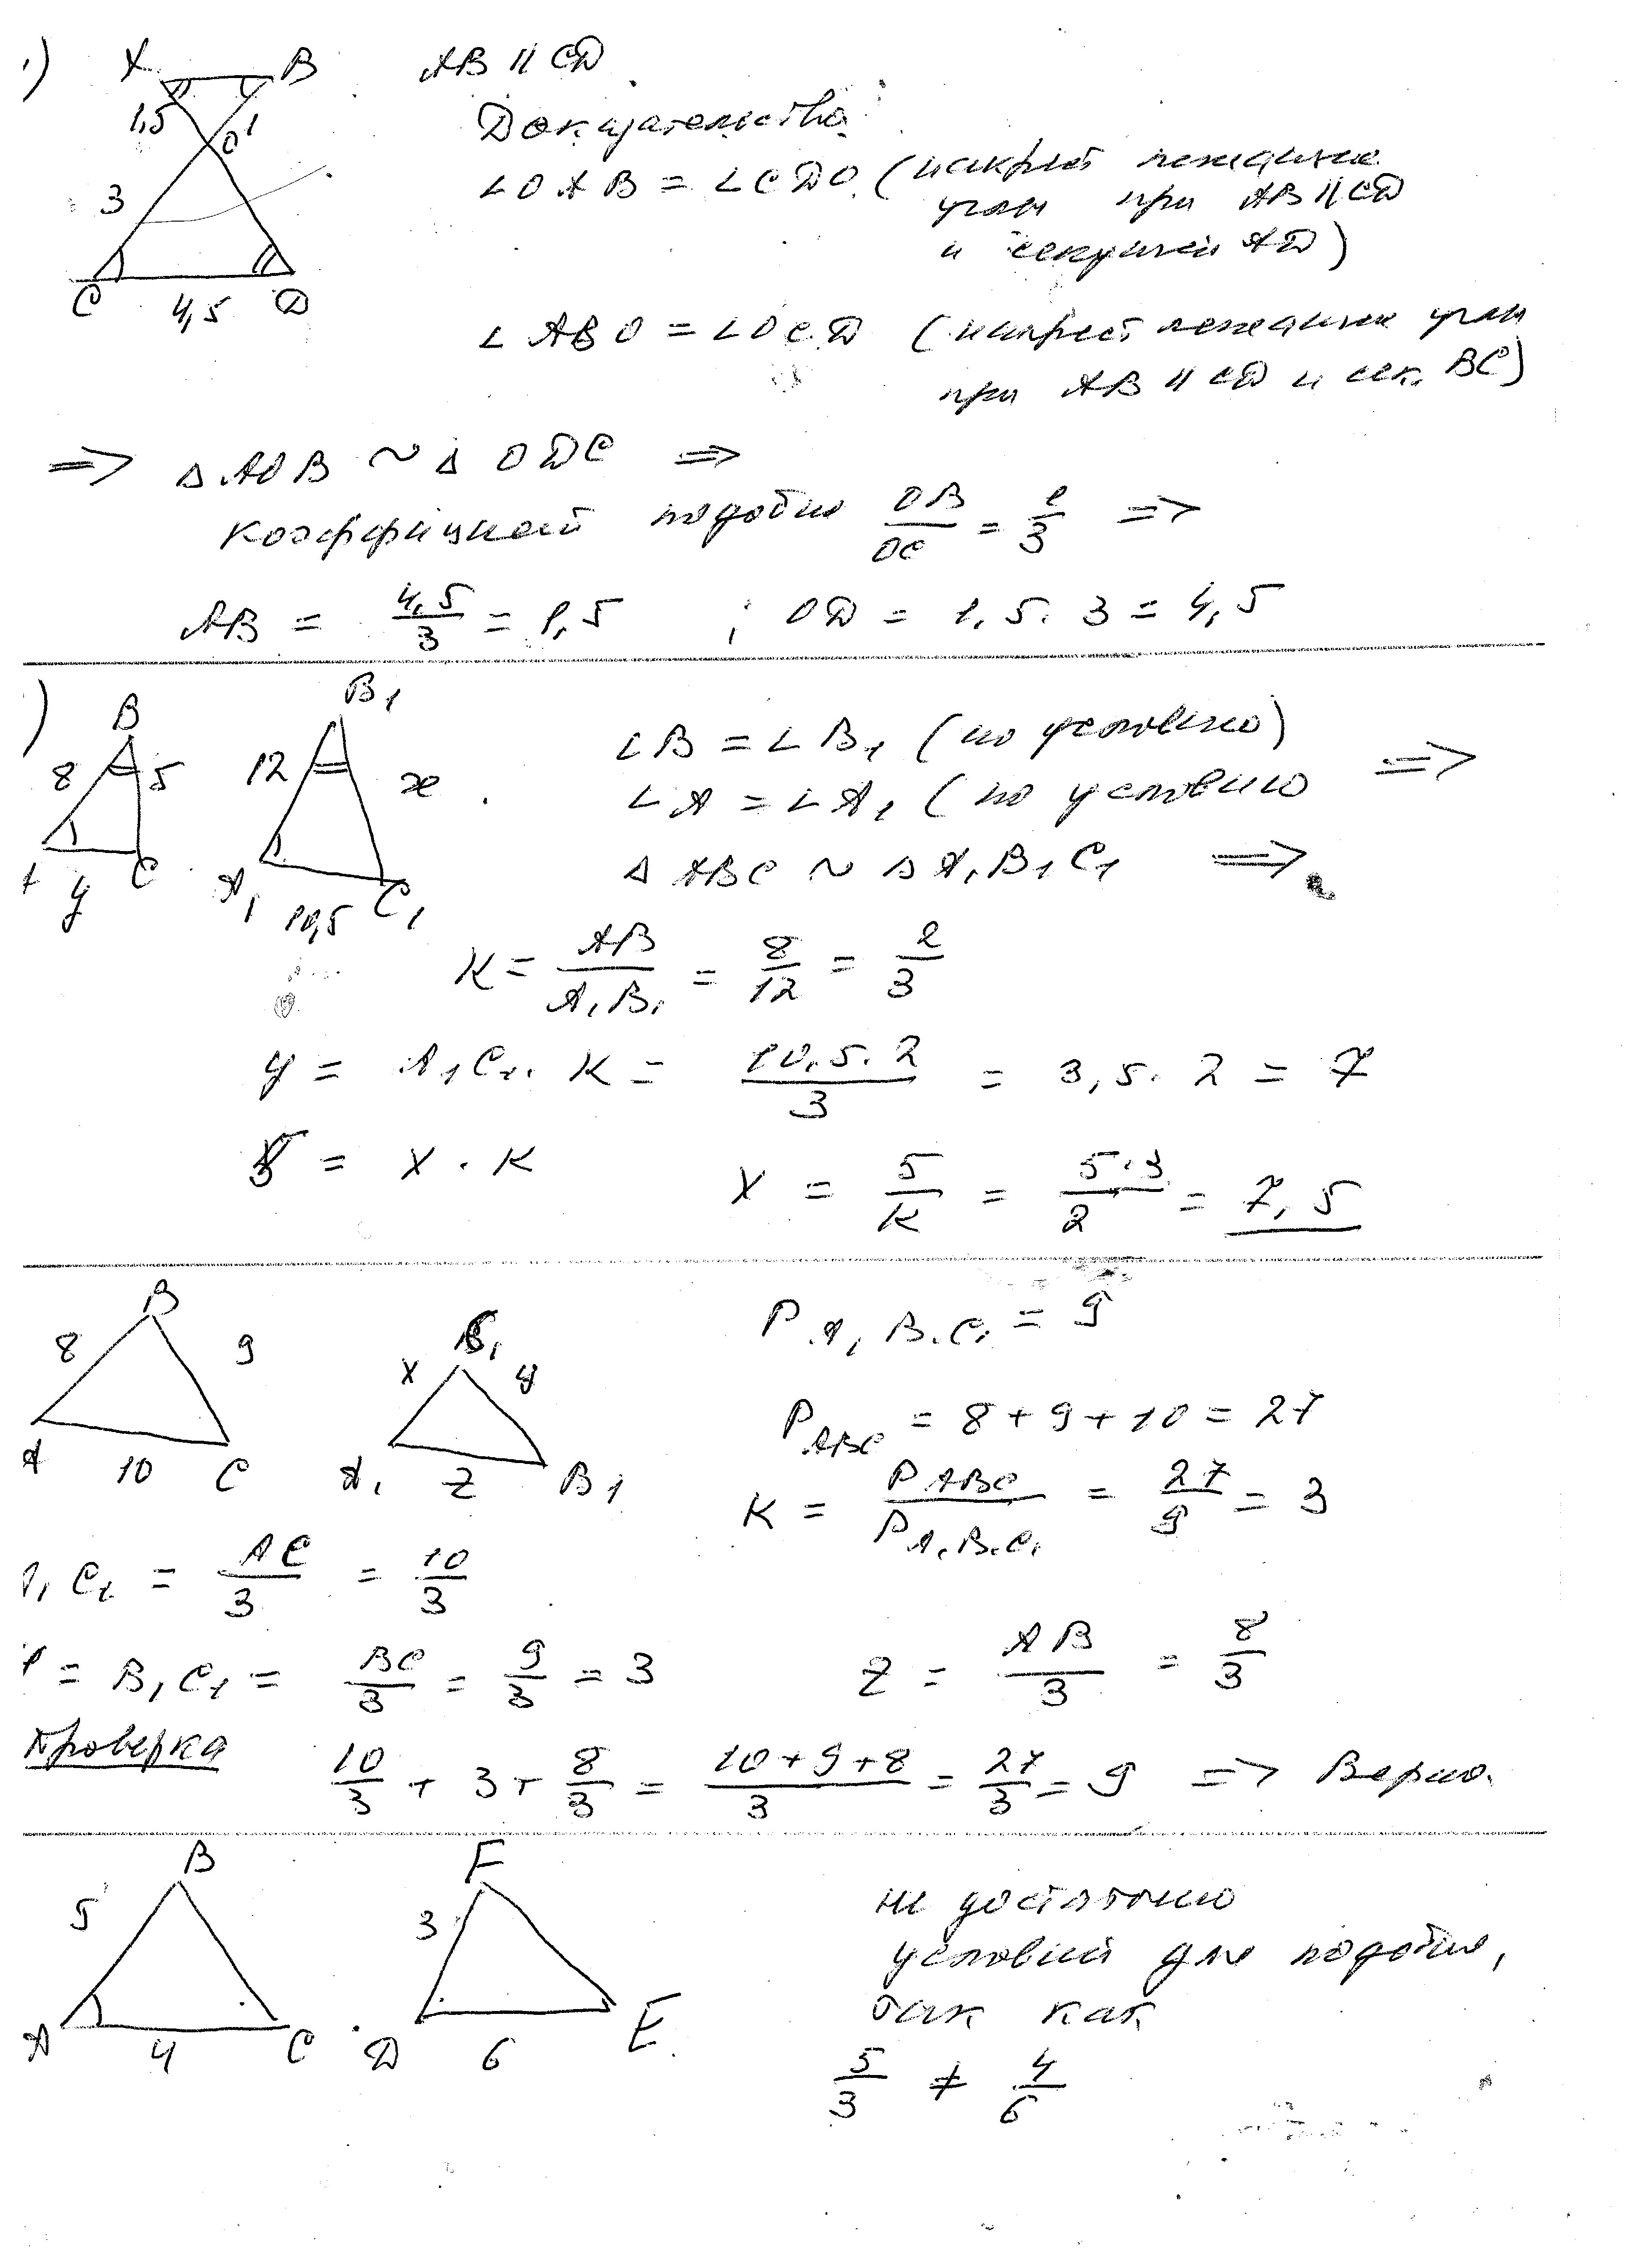 1)
A B
1,5 1
O
3
C 4,5 D
AB || CD
Доказательство:
∠OAB = ∠CDO (накрест лежащие
углы при AB || CD
и секущей AD)
∠ABO = ∠OCD (накрест лежащие углы
при AB || CD и сек. BC)
=> △AOB ~ △ODC =>
коэффициент подобия OB/OC = 1/3 =>
AB = 4,5/3 = 1,5 ; OD = 1,5 · 3 = 4,5
)
B B₁
8 5 12 x
A y C A₁ 10,5 C₁
∠B = ∠B₁ (по условию)
∠A = ∠A₁ (по условию =>
△ABC ~ △A₁B₁C₁ =>
K = AB/A₁B₁ = 8/12 = 2/3
y = A₁C₁ · K = 10,5 · 2/3 = 3,5 · 2 = 7
5 = X · K X = 5/K = 5·3/2 = 7,5
B
8 9
A 10 C
X y
A₁ Z B₁
P A₁B₁C₁ = 9
P ABC = 8 + 9 + 10 = 27
K = P ABC/P A₁B₁C₁ = 27/9 = 3
C₁ = AC/3 = 10/3
= B₁C₁ = BC/3 = 9/3 = 3 Z = AB/3 = 8/3
Проверка 10/3 + 3 + 8/3 = 10+9+8/3 = 27/3 = 9 => Верно.
B F
5 3
A 4 C D 6 E
не достаточно
условий для подобия,
так как
5/3 ≠ 4/6